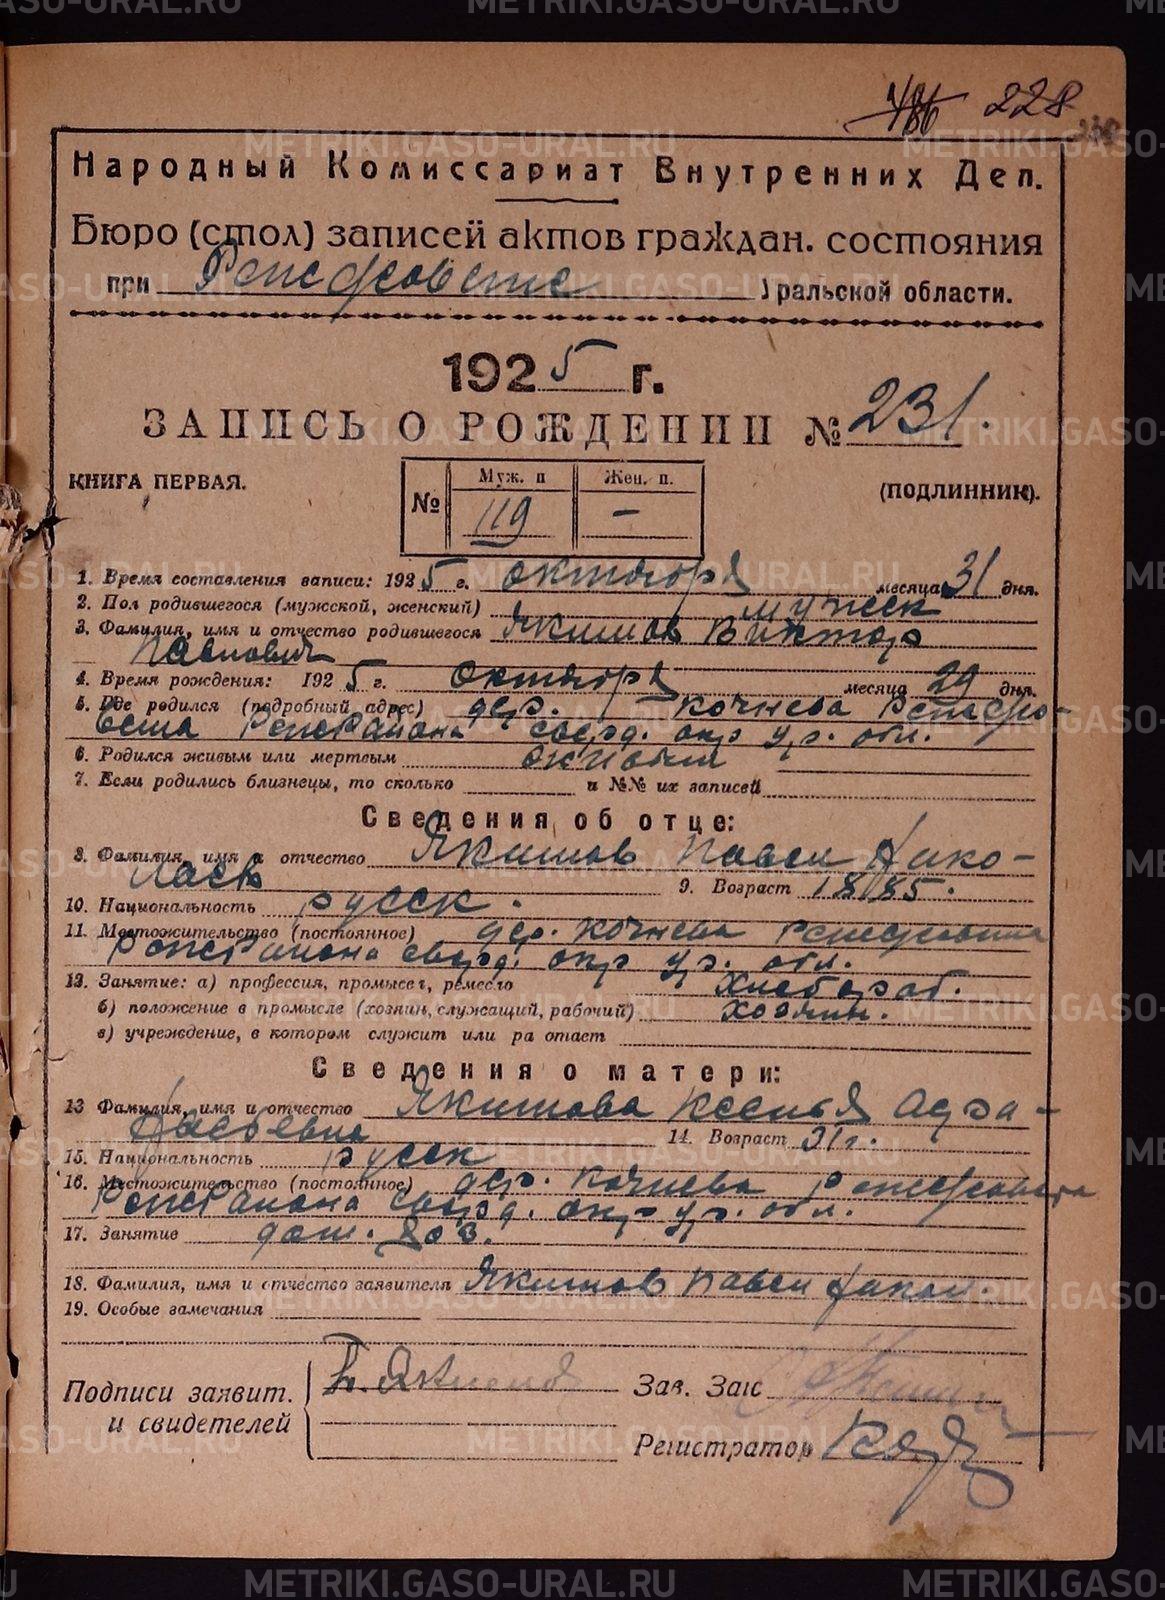 METRIKI.GASO-URAL.RU METRIKI.GASO-URAL.RU
186 228
Народный Комиссариат Внутренних Дел.
Бюро (стол) записей актов граждан. состояния
при Режсовете Уральской области.
1925 г.
ЗАПИСЬ О РОЖДЕНИИ № 231.
КНИГА ПЕРВАЯ.
№ Муж. п Жен. п.
119 —
(ПОДЛИННИК).
1. Время составления записи: 1925 г. октября месяца 31 дня.
2. Пол родившегося (мужской, женский) мужск
3. Фамилия, имя и отчество родившегося Якимов Виктор
Павлович
4. Время рождения: 1925 г. октября месяца 29 дня.
5. Где родился (подробный адрес) дер. Кочнева
района сверд. окр ур. обл.
6. Родился живым или мертвым живым
7. Если родились близнецы, то сколько и №№ их записей
Сведения об отце:
8. Фамилия, имя и отчество Якимов Павел Нико-
лаев 9. Возраст 1885.
10. Национальность русск.
11. Местожительство (постоянное) дер. Кочнева
района сверд. окр ур. обл.
12. Занятие: а) профессия, промысел, ремесло Хлебороб.
б) положение в промысле (хозяин, служащий, рабочий) хозяин.
в) учреждение, в котором служит или ра отает
Сведения о матери:
13 Фамилия, имя и отчество Якимова Ксенья
14. Возраст 31 г.
15. Национальность русск
16. Местожительство (постоянное) дер. Кочнева
района сверд. окр ур. обл.
17. Занятие дом. хоз.
18. Фамилия, имя и отчество заявителя Якимов Павел Никол.
19. Особые замечания
Подписи заявит.
и свидетелей
П. Якимов
Зав. Загс
Регистратор
METRIKI.GASO-URAL.RU METRIKI.GASO-URAL.RU